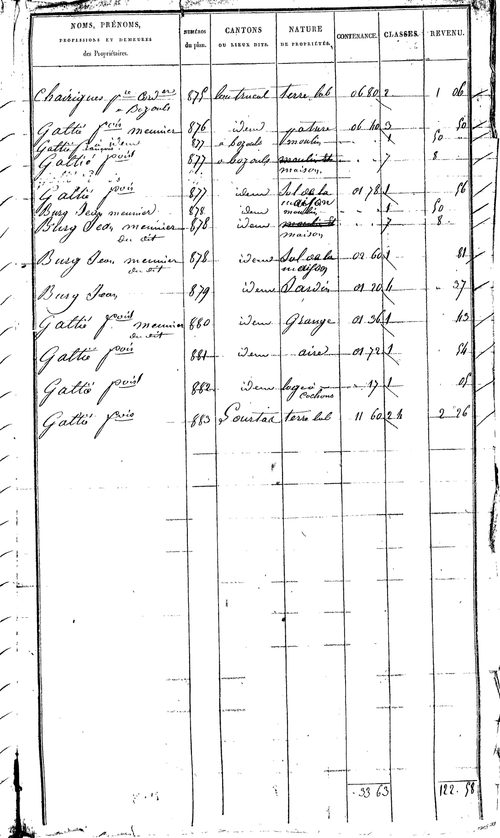 NOMS, PRÉNOMS, PROFESSIONS ET DEMEURES des Propriétaires. NUMÉROS du plan. CANTONS OU LIEUX DITS. NATURE DE PROPRIÉTÉS. CONTENANCE. CLASSES. REVENU.
Chairigues pre 875 terre lab 06 80 2 1 06
a Bozouls
Galtié pois meunier 876 idem pature 06 40 3 50
Galtié idem 877 a bozouls moulin 1 50
Galtié pois 877 a bozouls moulin 7 8
maison
Galtié pois 877 idem Sol de la 01 78 1 56
maison
Burg Jean meunier 878 idem moulin 1 50
Burg Jean meunier 878 idem moulin 7 8
du dit maison
Burg Jean meunier 878 idem Sol de la 02 60 1 81
du dit maison
Burg Jean 879 idem Jardin 01 20 4 37
Galtié pois meunier 880 idem Grange 01 36 1 43
du dit
Galtié pois 881 idem aire 01 72 1 54
Galtié pois 882 idem loge à 17 1 05
cochons
Galtié pois 883 Gourtad terre lab 11 60 2 4 2 26
33 63 122 58